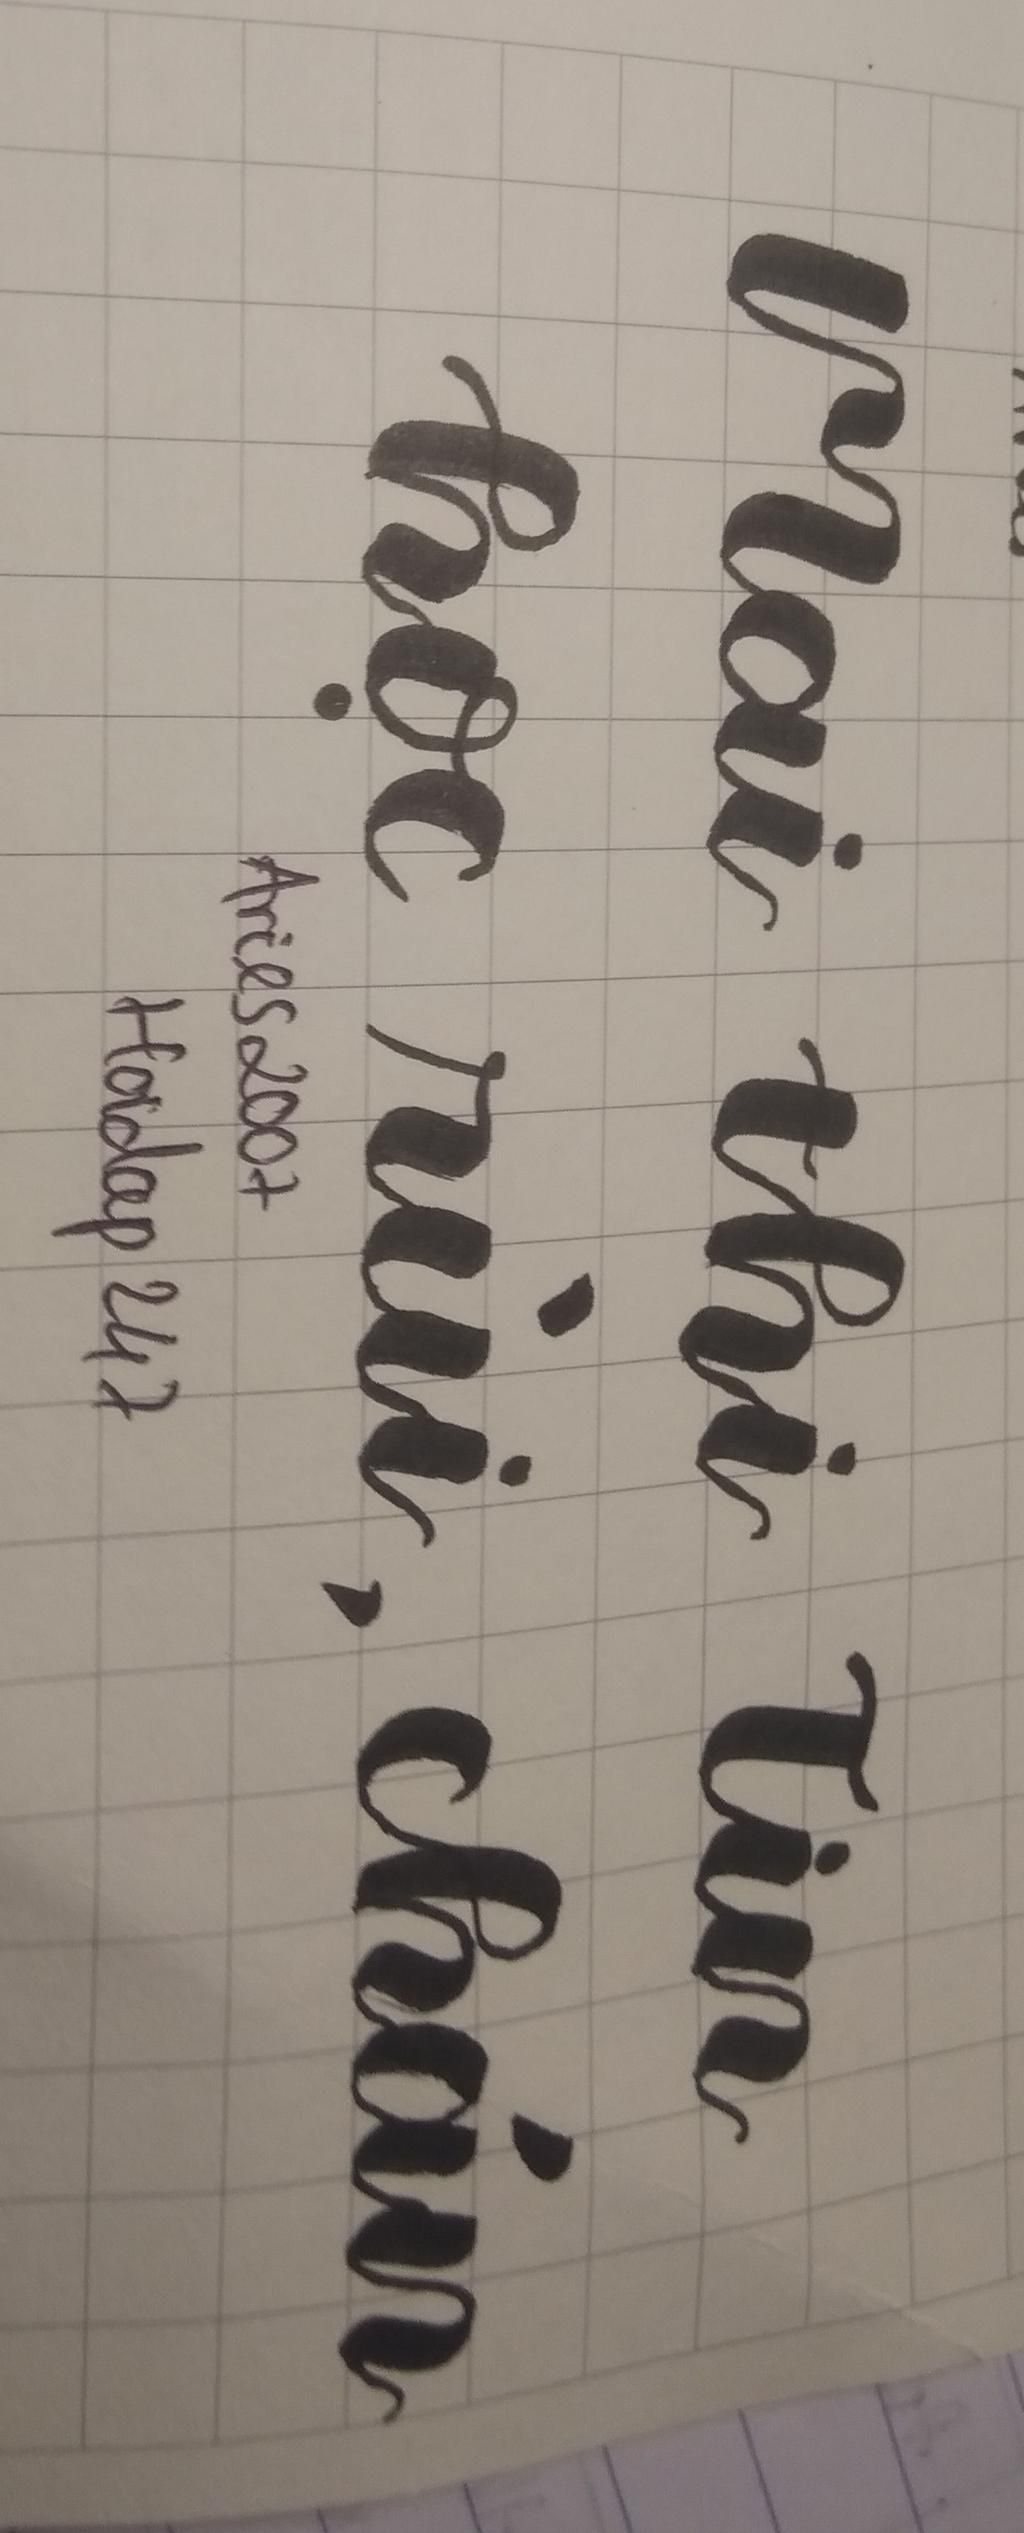 Mai thi Tin
học rùi, chán
Aries2007
Hoidap247